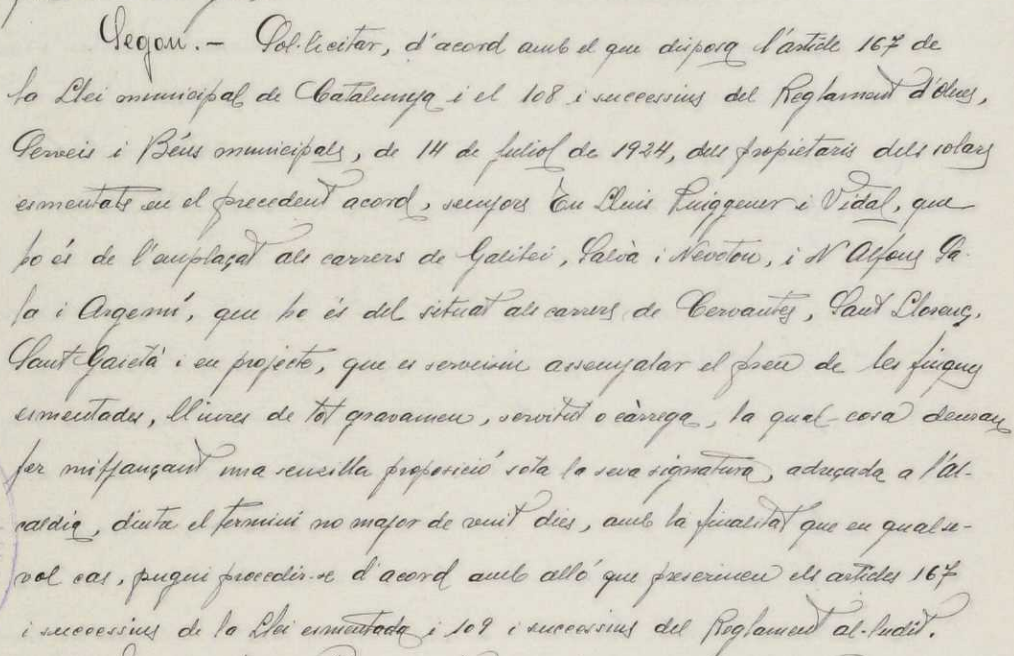 Segon.- Sol·licitar, d'acord amb el que disposa l'article 167 de
la Llei municipal de Catalunya i el 108 i successius del Reglament d'Obres,
Serveis i Béns municipals, de 14 de juliol de 1924, dels propietaris dels solars
esmentats en el precedent acord, senyors En Lluis Puiggener i Vidal, que
ho és de l'emplaçat als carrers de Galilei, Salvà i Newton, i N'Alfons Sa-
la i Argemí, que ho és del situat als carrers de Cervantes, Sant Llorenç,
Sant Gaietà i en projecte, que es serveixin assenyalar el preu de les finques
esmentades, lliures de tot gravamen, servitut o càrrega, la qual cosa deuran
fer mitjançant una senzilla proposició sota la seva signatura, adreçada a l'al-
caldia, dintre el termini no major de vuit dies, amb la finalitat que en qualse-
vol cas, pugui procedir-se d'acord amb alló que prescriuen els articles 167
i successius de la Llei esmentada i 109 i successius del Reglament al·ludit.